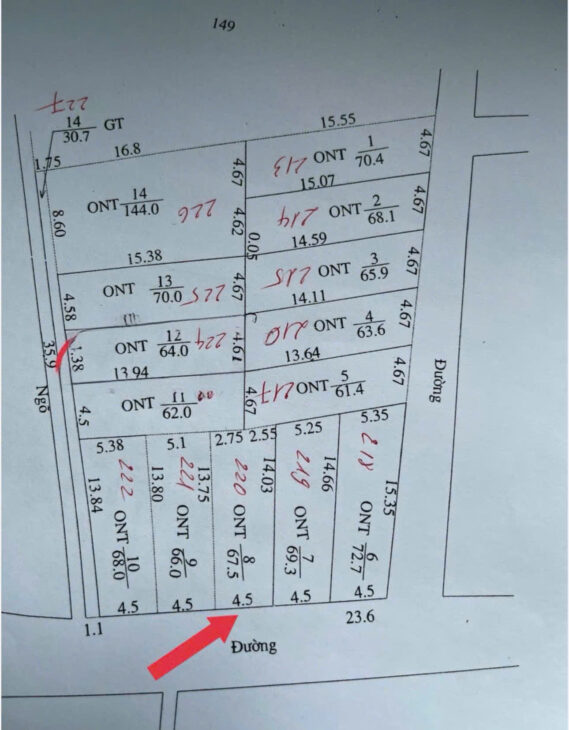 149
227
14
30.7 GT
1.75 16.8 15.55
ONT 14
144.0
226
8.60
4.67
4.62
0.05
15.38
213 ONT 1
70.4
4.67
15.07
214 ONT 2
68.1
4.67
14.59
215 ONT 3
65.9
4.67
14.11
ONT 4
63.6
4.67
13.64
217 ONT 5
61.4
4.67
ONT 13
70.0
225
4.58
4.67
ONT 12
64.0
224
4.61
13.94
ONT 11
62.0
4.5
4.67
35.9
Ngõ
Đường
5.38 5.1 2.75 2.55 5.25 5.35
222 221 220 219 218
13.84 13.80 13.75 14.03 14.66 15.35
ONT 10
68.0
ONT 9
66.0
ONT 8
67.5
ONT 7
69.3
ONT 6
72.7
4.5 4.5 4.5 4.5 4.5
1.1 23.6
Đường